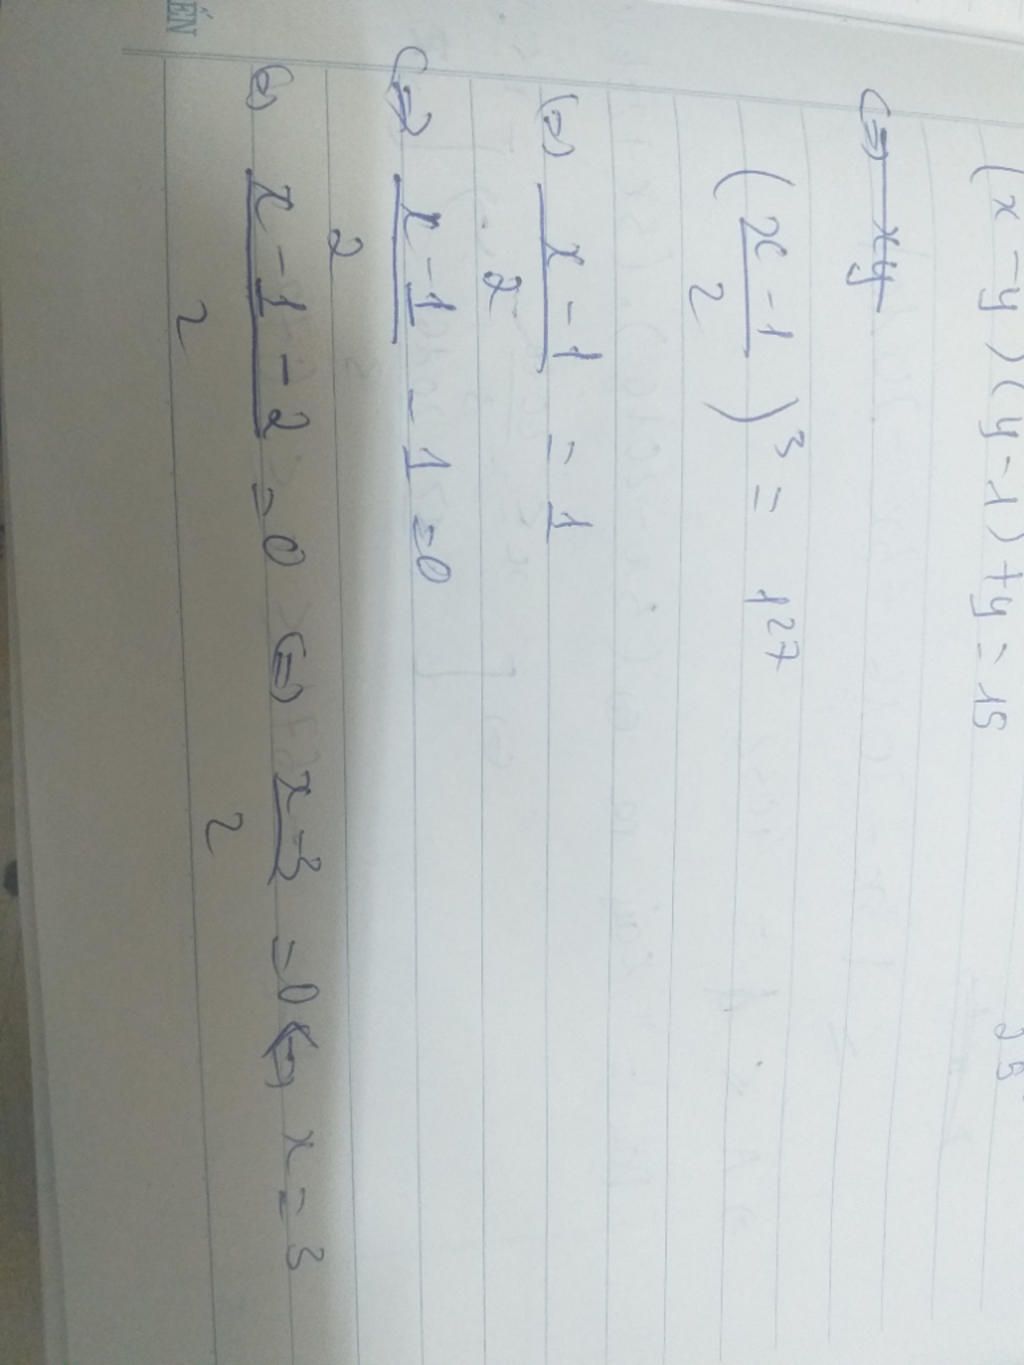 (x - y)(y - 1) + y = 15
(=) xy
(x - 1 / 2)³ = 1²⁷
(=) x - 1 / 2 = 1
(=) x - 1 / 2 - 1 = 0
(=) x - 1 - 2 / 2 = 0 (=) x - 3 / 2 = 0 (=) x = 3
ẾN